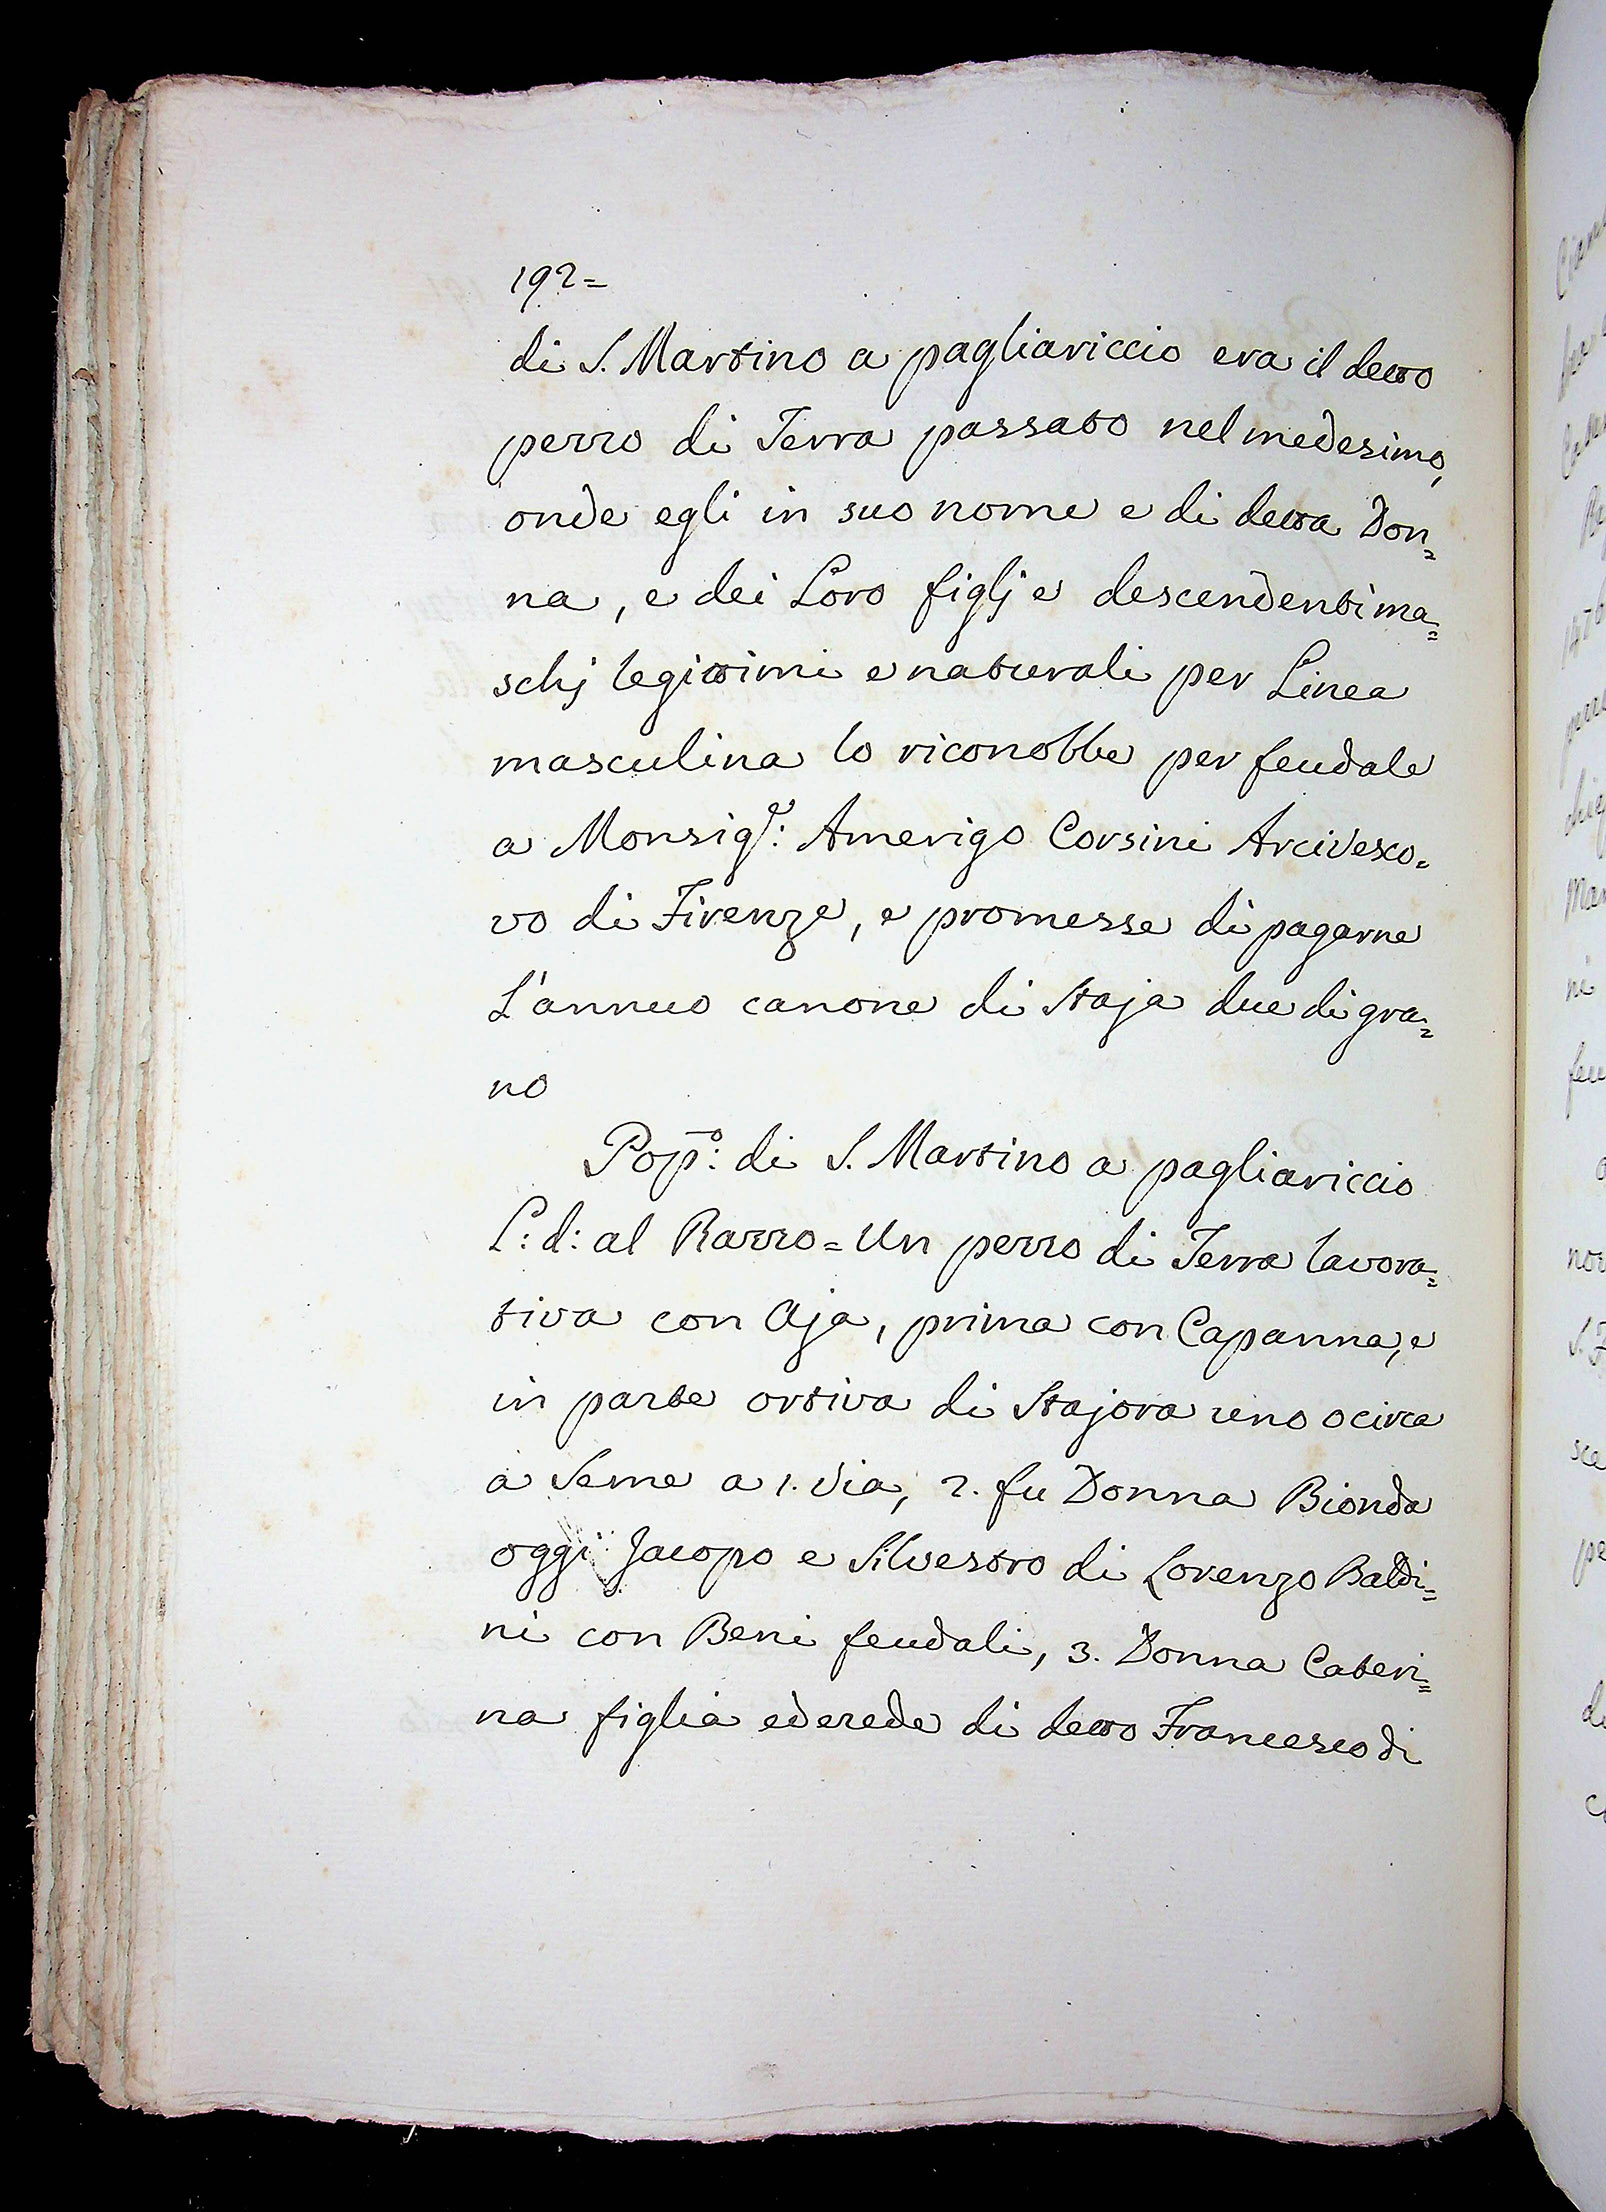 192=
di S. Martino a pagliariccio era il detto
pezzo di Terra passato nel medesimo,
onde egli in suo nome e di detta Don=
na, e dei Loro figlj e descendenti ma=
schj legittimi e naturali per Linea
masculina lo riconobbe per feudale
a Monsigr: Amerigo Corsini Arcivesco=
vo di Firenze, e promesse di pagarne
L'annuo canone di Staja due di gra=
no
Popo: di S. Martino a pagliariccio
L: d: al Razzo = Un pezzo di Terra lavora=
tiva con Aja, prima con Capanna, e
in parte ortiva di Stajora uno o circa
a Seme a 1. Via, 2. fu Donna Bionda
oggi Jacopo e Silvestro di Lorenzo Baldi=
ni con Beni feudali, 3. Donna Cateri=
na figlia ed erede di detto Francesco di